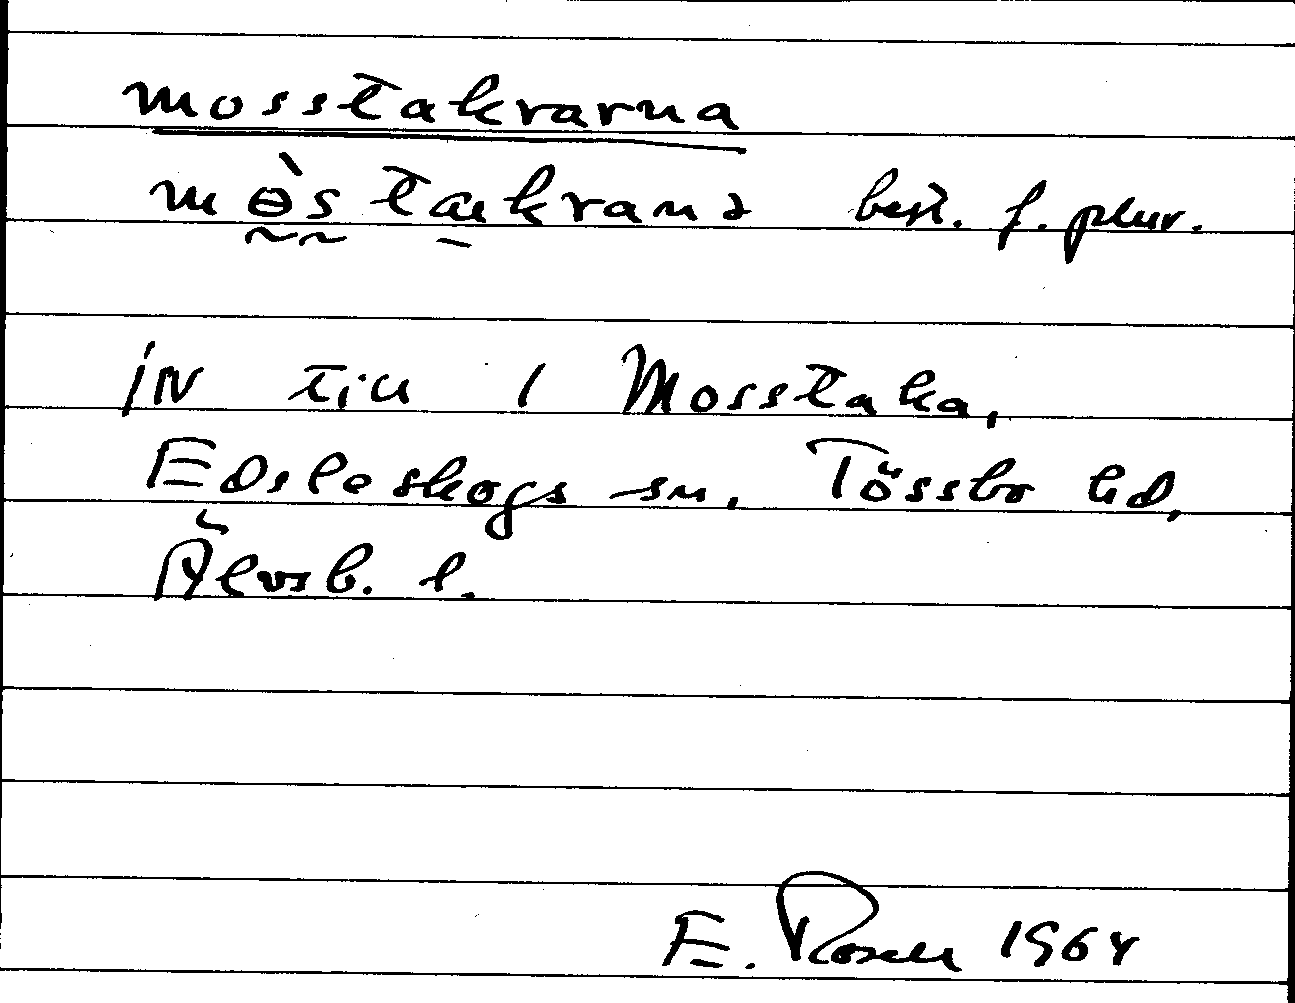 mosstakrarna
best. f. plur.
IN till 1 Mosstaka,
Edsleskogs sn. Tössbo hd,
Älvsb. l.
E. Rosell 1964